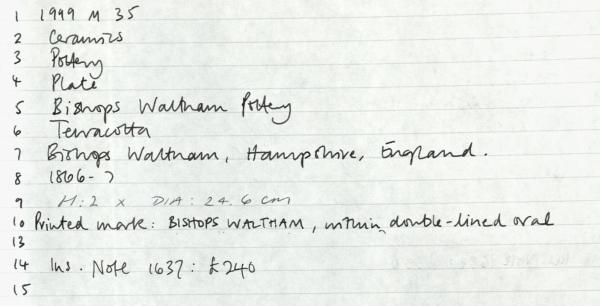 1 1999 M 35
2 Ceramics
3 Pottery
4 Plate
5 Bishops Waltham Pottery
6 Terracotta
7 Bishops Waltham, Hampshire, England.
8 1866-?
9 H: 2 x DIA: 24.6 cm
10 Printed mark: BISHOPS WALTHAM, within double-lined oval
13
14 Ins. Note 1637: £240
15